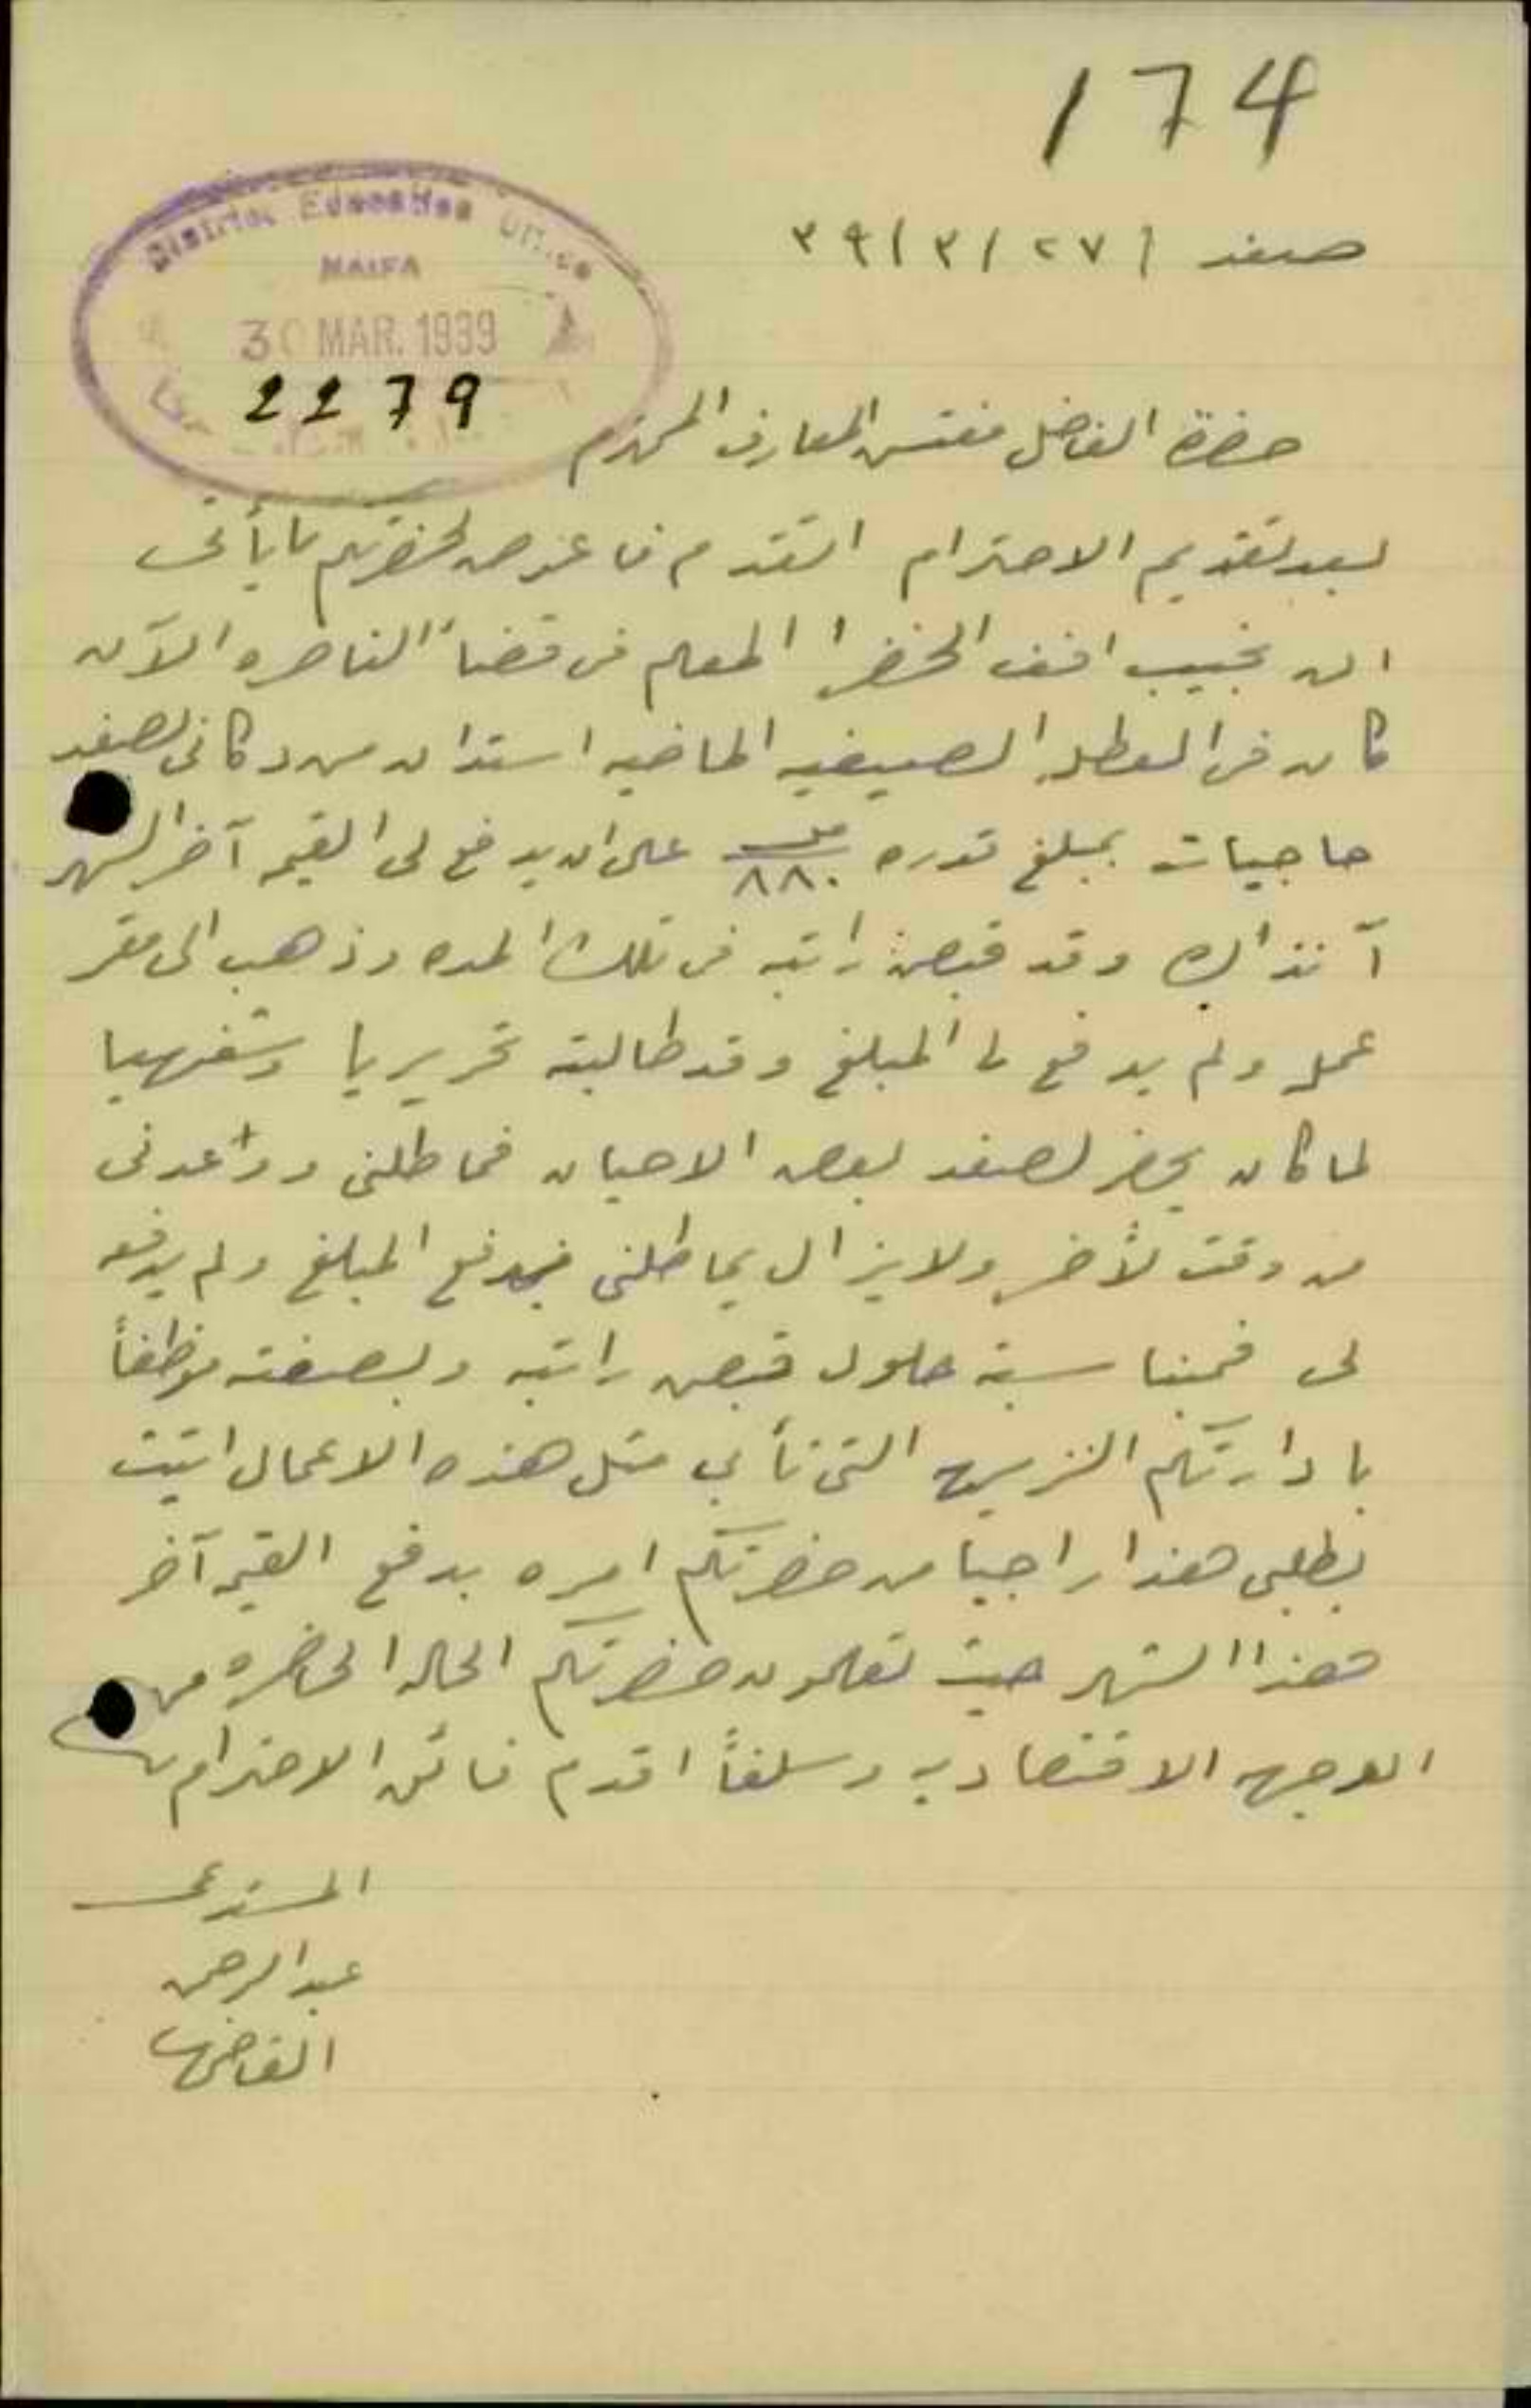 174
صفد ٢٧/٣/٣٩
District Education Office
HAIFA
30 MAR. 1939
2279
حضرة الفاضل مفتش المعارف المحترم
بعد تقديم الاحترام اتقدم فاعرض لحضرتكم ما يأتي
ان نجيب افندي الخضرا المعلم في قضاء الناصره الآن
كان في العطله الصيفيه الماضيه استدان من دكاني بصفد
حاجيات بمبلغ قدره ٨٨٠ مل على ان يدفع لي القيمه آخر الشهر
آنذاك وقد قبض راتبه في تلك المده وذهب الى مقر
عمله ولم يدفع لي المبلغ وقد طالبته تحريريا وشفهيا
لما كان يحضر لصفد بعض الاحيان فماطلني وواعدني
من وقت لآخر ولا يزال يماطلني بدفع المبلغ ولم يدفعه
لي فبمناسبة حلول قبض راتبه وبصفته موظفاً
بادارتكم النزيهه التي تأبى مثل هذه الاعمال اتيت
بطلبي هذا راجيا من حضرتكم امره بدفع القيمه آخر
هذا الشهر حيث تعلمون حضرتكم الحاله الحاضره من
الوجهه الاقتصاديه وسلفاً اقدم فائق الاحترام
المستدعي
عبد الرحمن
القاضي